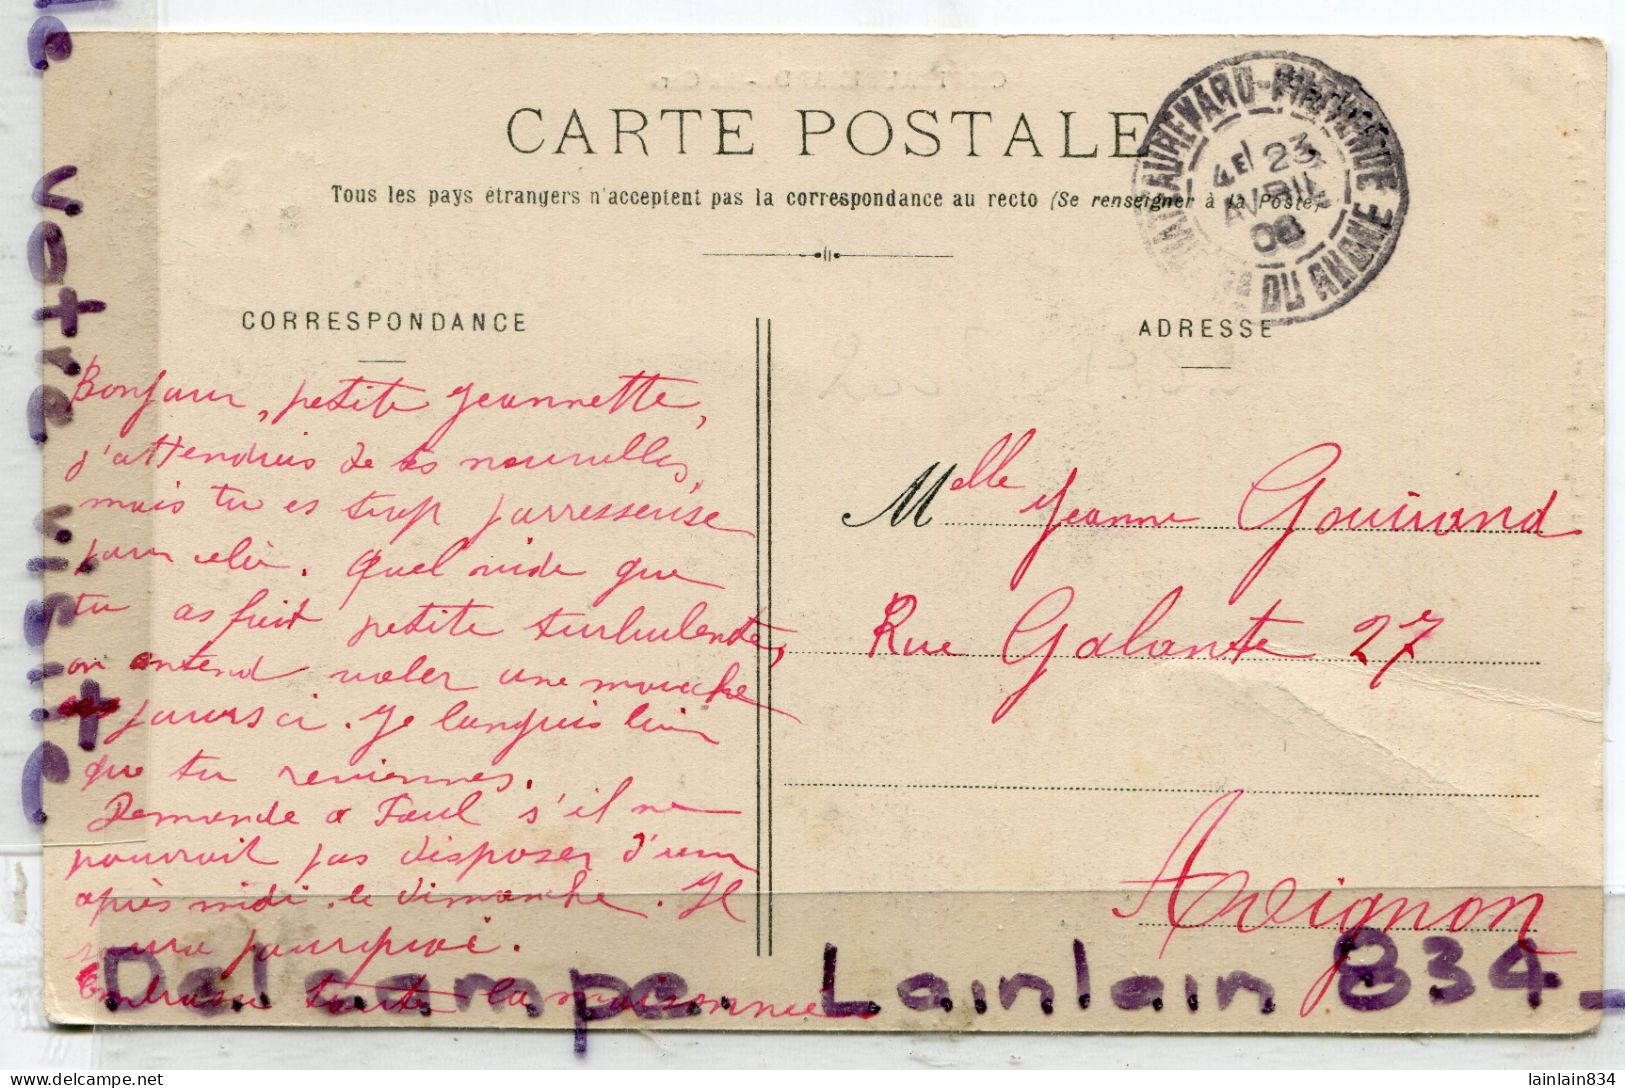 CARTE POSTALE
Tous les pays étrangers n'acceptent pas la correspondance au recto (Se renseigner à la Poste)
CORRESPONDANCE
ADRESSE
Bonjour, petite Jeannette,
j'attendais de tes nouvelles,
mais tu es trop parresseuse
pour cela. Quel vide que
tu as fait petite turbulente,
on entend voler une mouche
jours ci. Je languis bien
que tu reviennes.
Demande à Paul s'il ne
pourrait pas disposer d'une
après midi le dimanche. Il
saura pourquoi.
Embrasse toute la maisonnée.
Melle Jeanne Gouirand
Rue Galante 27
Avignon
23
AVRIL
08
DU RHONE
votre visite
Delcampe. Lainlain 834
delcampe.net
lainlain834